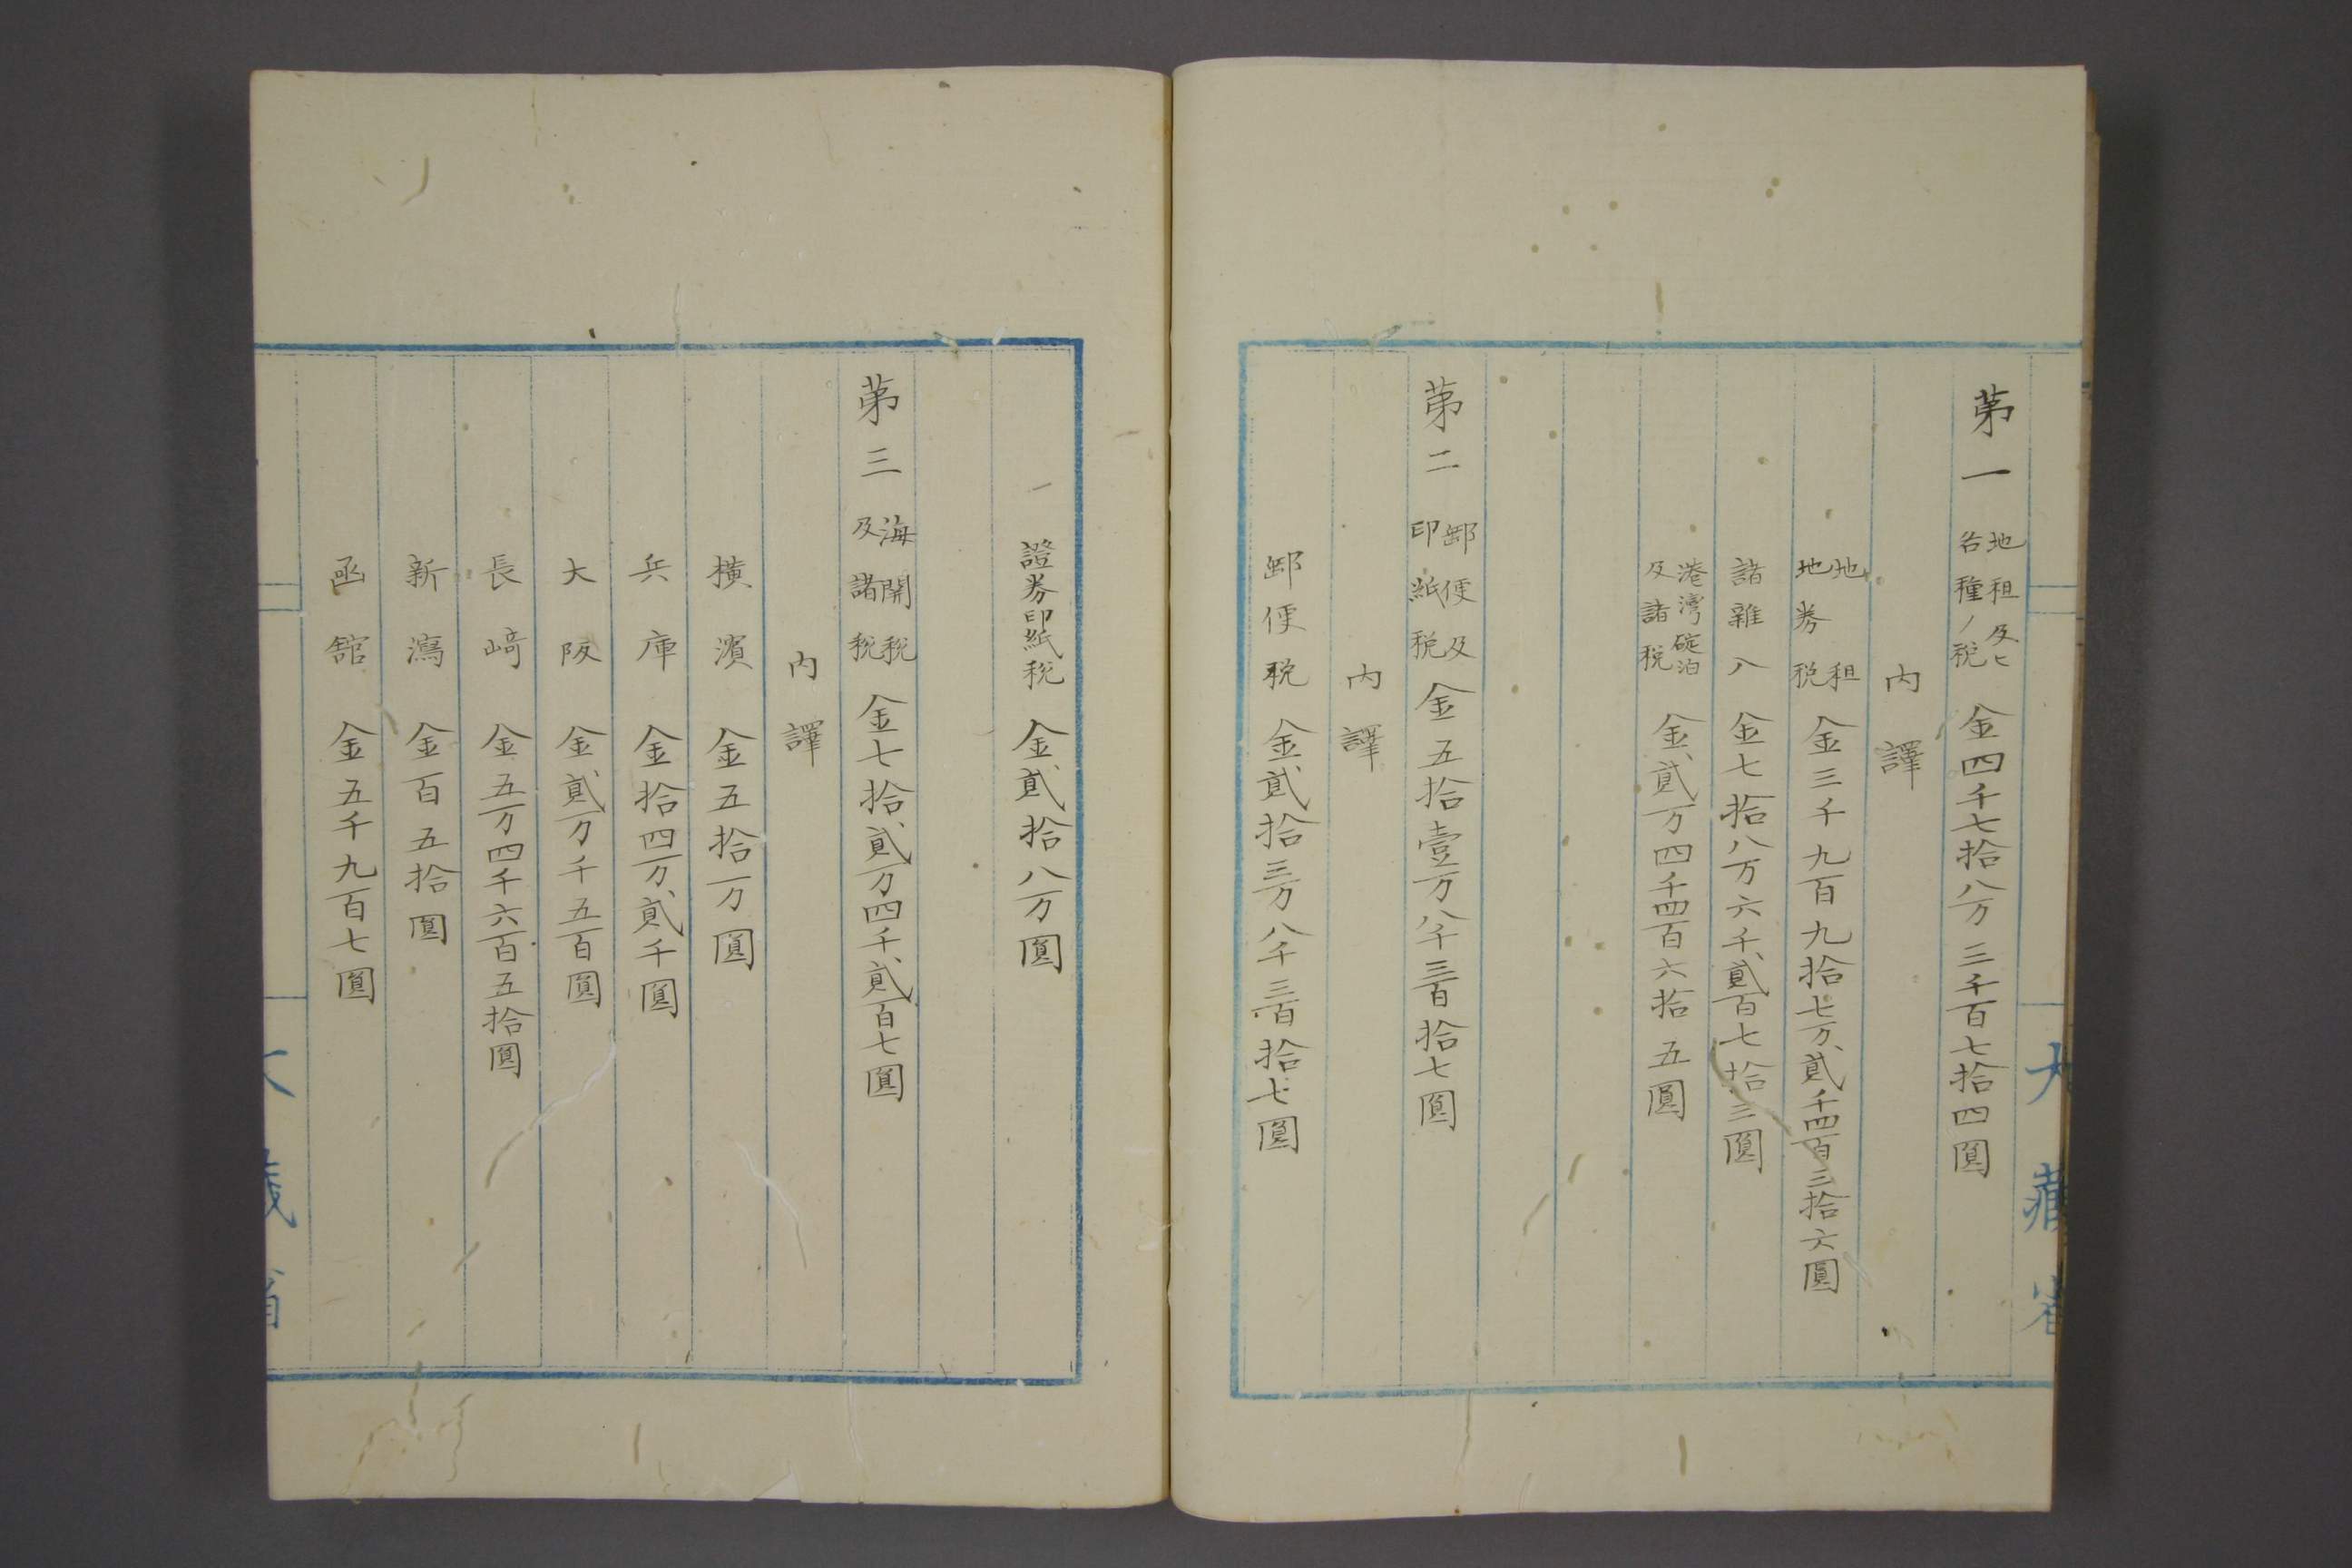 第一 地租及ヒ各種ノ税 金四千七拾八万三千百七拾四圓
内譯
地租地券税 金三千九百九拾七万貳千四百三拾六圓
諸雜入 金七拾八万六千貳百七拾三圓
港灣碇泊及諸税 金貳万四千四百六拾五圓
第二 郵便及印紙税 金五拾壹万八千三百拾七圓
内譯
郵便税 金貳拾三万八千三百拾七圓
大藏省
證券印紙税 金貳拾八万圓
第三 海関税及諸税 金七拾貳万四千貳百七圓
内譯
横濱 金五拾一万圓
兵庫 金拾四万貳千圓
大阪 金貳万千五百圓
長﨑 金五万四千六百五拾圓
新潟 金百五拾圓
函館 金五千九百七圓
大藏省